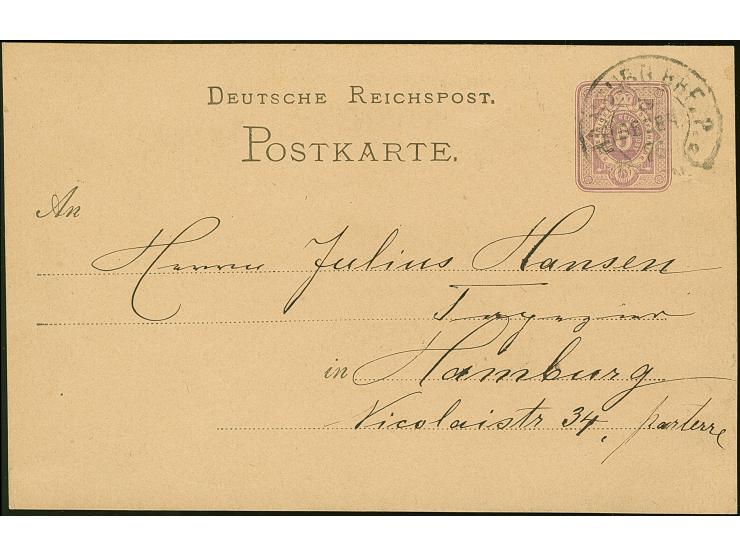 DEUTSCHE REICHSPOST.
POSTKARTE.
5
An
Herrn Julius Hansen
Tapezier
in Hamburg
Nicolaistr 34, parterre